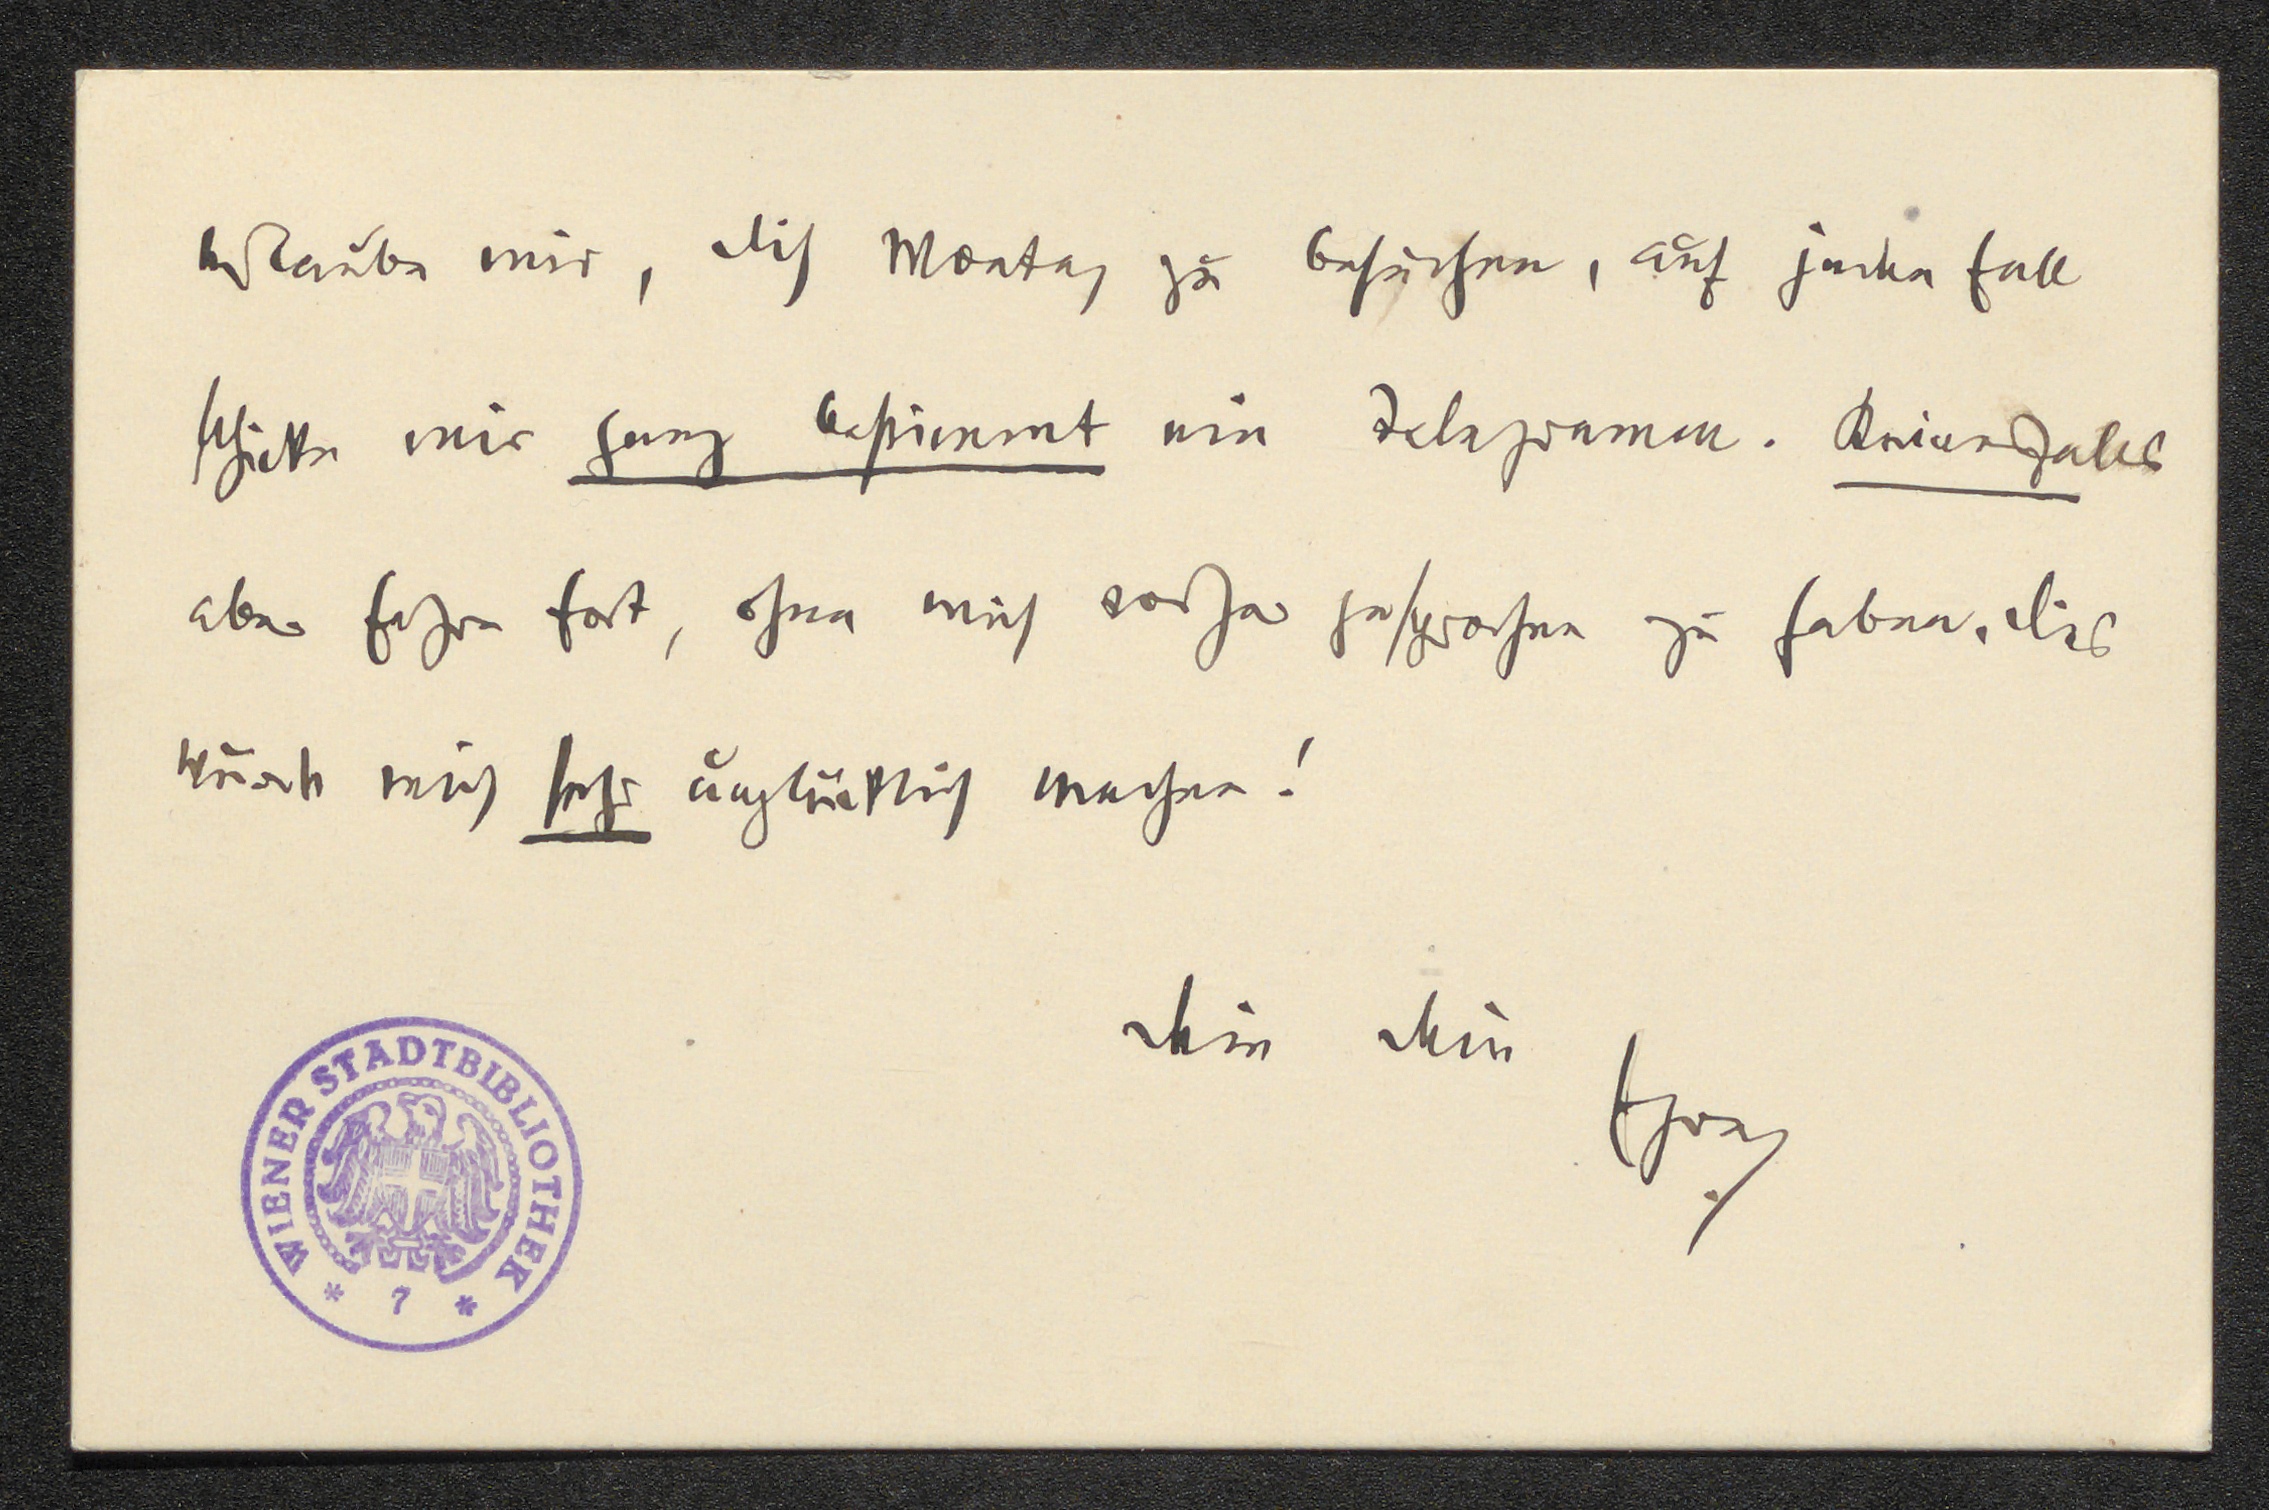 erlaube mir, dich Montag zu besuchen, auf jeden Fall
schicke mir ganz bestimmt ein Telegramm. Keinesfalls
aber fahre fort, ohne mich vorher gesprochen zu haben, dies
würde mich sehr unglücklich machen!
dein dein
WIENER STADTBIBLIOTHEK
* 7 *